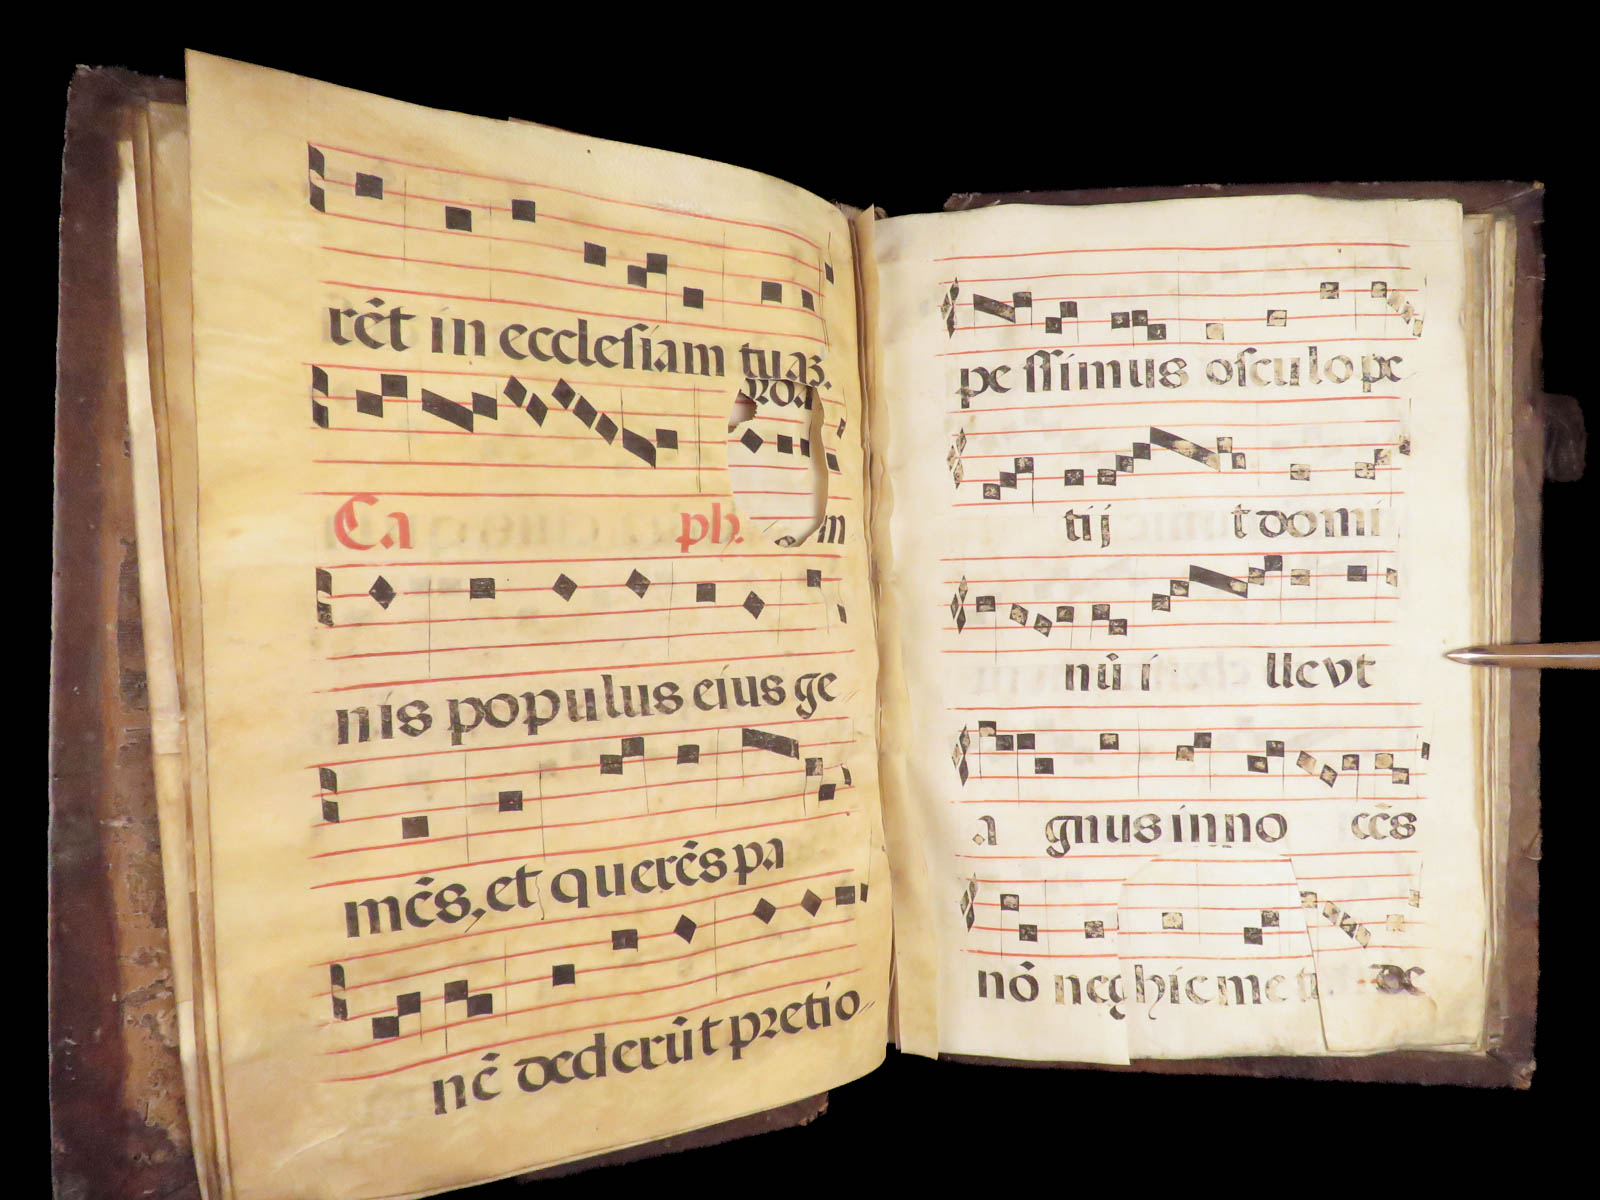 rēt in ecclesiam tuaȝ.
Ca ph. m
nis populus eius ge
mēs, et querēs pa
nē dederūt pretio
pe ssimus osculo pe
tij t domi
nū i lle vt
a gnus inno cēs
nō neq hic me